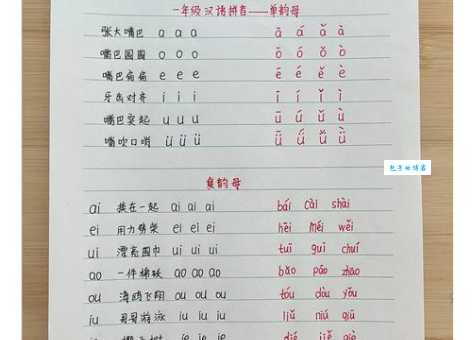 一年级汉语拼音——单韵母
张大嘴巴 a a a ā á ǎ à
嘴巴圆圆 o o o ō ó ǒ ò
嘴巴扁扁 e e e ē é ě è
牙齿对齐 i i i ī í ǐ ì
嘴巴突起 u u u ū ú ǔ ù
嘴吹口哨 ü ü ü ǖ ǘ ǚ ǜ
包子的博客
复韵母
ai 挨在一起 ai ai ai bái cài shài
ei 用力劈柴 ei ei ei hēi méi wěi
ui 漂亮围巾 ui ui ui tuī guì chuí
ao 一件棉袄 ao ao ao bǎo pào zhāo
ou 海鸥飞翔 ou ou ou tóu dòu yōu
iu 哥哥游泳 iu iu iu liǔ niú qiū
ie ie ie dié jiě